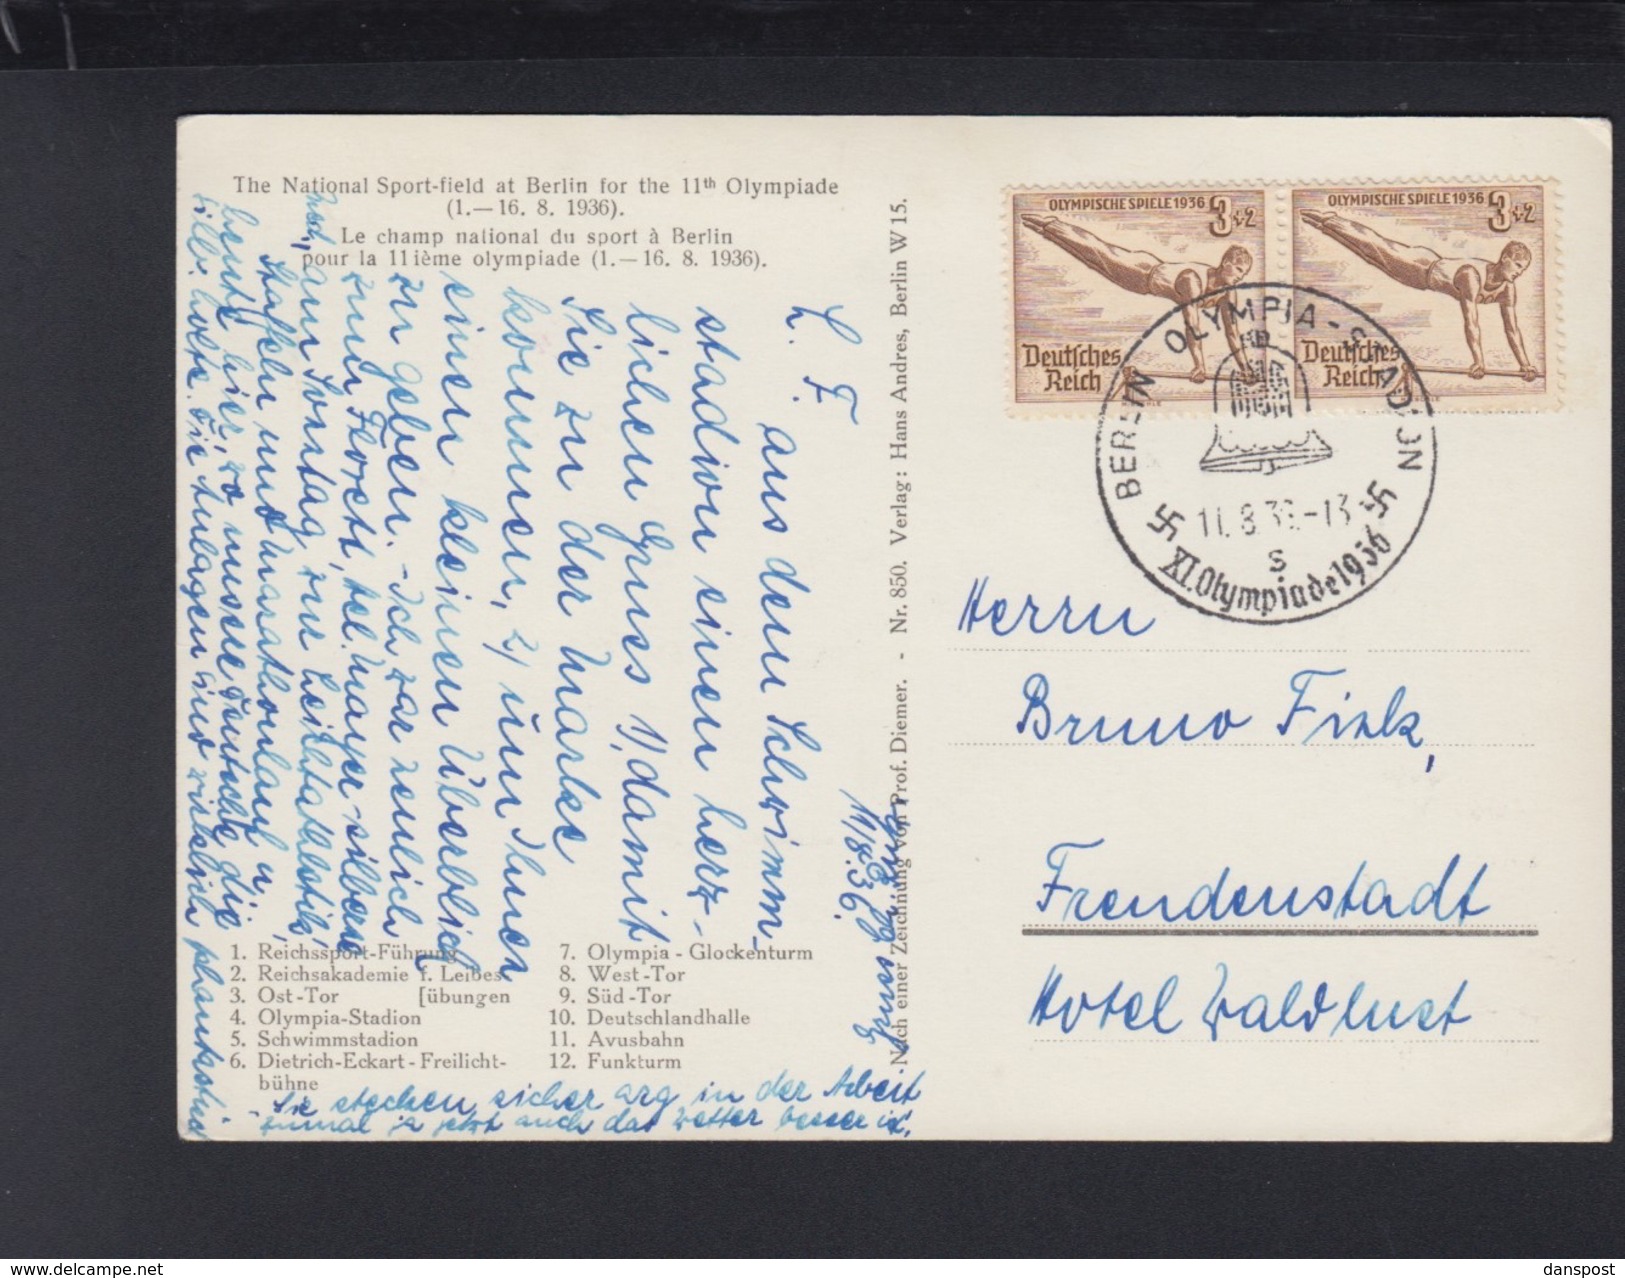 The National Sport-field at Berlin for the 11th Olympiade
(1.—16. 8. 1936).
Le champ national du sport à Berlin
pour la 11ième olympiade (1.—16. 8. 1936).
L. F.
aus dem Schwimm-
stadion einen herz-
lichen Gruss 1) damit
Sie zu der Marke
kommen, 2) um Ihnen
einen kleinen Überblick
zu geben. - Ich war neulich
zum Florett, Hel. Mayer - silberne
am Sonntag zur Leichtathletik,
Staffeln und Marathonlauf u.
heute hier, wo unsere Deutsche die
silb. holte. Die Anlagen sind wirklich phantastisch
11/8.36.
1. Reichssport-Führung
2. Reichsakademie f. Leibes-
3. Ost-Tor [übungen
4. Olympia-Stadion
5. Schwimmstadion
6. Dietrich-Eckart-Freilicht-
bühne
7. Olympia-Glockenturm
8. West-Tor
9. Süd-Tor
10. Deutschlandhalle
11. Avusbahn
12. Funkturm
- Sie stecken sicher arg in der Arbeit
zumal ja jetzt auch das Wetter besser ist.
Nach einer Zeichnung von Prof. Diemer. - Nr. 850. Verlag: Hans Andres, Berlin W 15.
OLYMPISCHE SPIELE 1936 3+2
Deutsches
Reich
OLYMPISCHE SPIELE 1936 3+2
Deutsches
Reich
BERLIN OLYMPIA-STADION
11.8.36.-13
S
XI. Olympiade 1936
Herrn
Bruno Fink,
Freudenstadt
Hotel Waldlust
delcampe.net
danspost